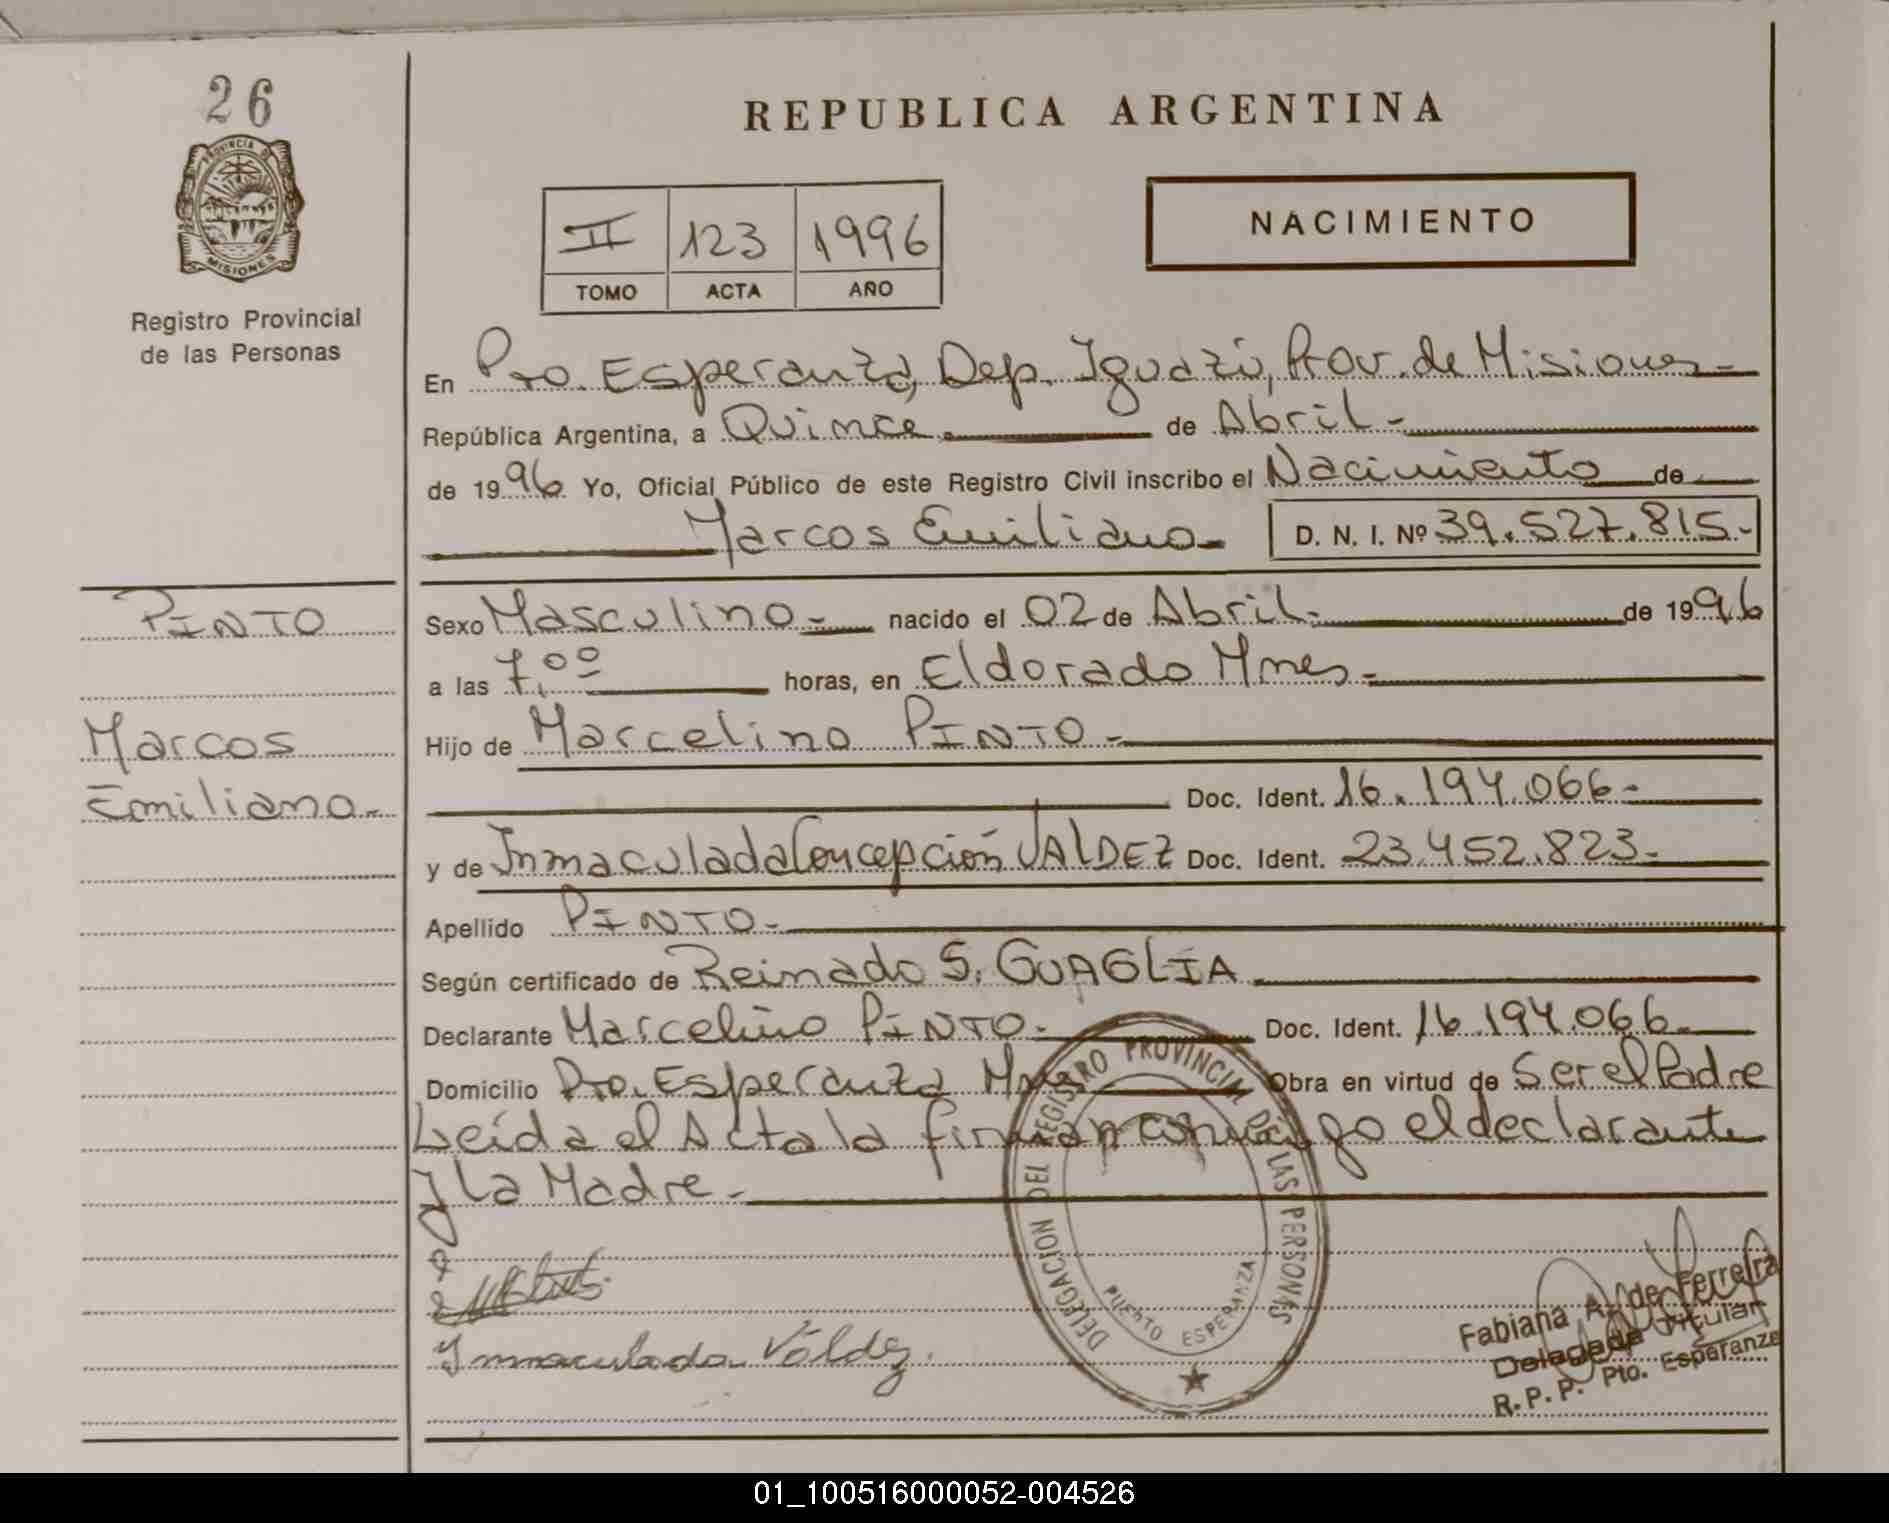 26
PROVINCIA DE
MISIONES
Registro Provincial
de las Personas
REPUBLICA ARGENTINA
II 123 1996
TOMO ACTA AÑO
NACIMIENTO
En Pto. Esperanza, Dep. Iguazú, Prov. de Misiones-
República Argentina, a Quince. de Abril-
de 1996 Yo, Oficial Público de este Registro Civil inscribo el Nacimiento de
Marcos Emiliano- D. N. I. Nº 39.527.815.-
PINTO
Marcos
Emiliano-
Sexo Masculino- nacido el 02 de Abril- de 1996
a las 7,00 horas, en Eldorado Mnes-
Hijo de Marcelino PINTO-
Doc. Ident. 16.194.066-
y de Inmaculada Concepción VALDEZ Doc. Ident. 23.452.823-
Apellido PINTO-
Según certificado de Reinado S. GUAGLIA
Declarante Marcelino PINTO- Doc. Ident. 16.194.066-
Domicilio Pto. Esperanza Mnes Obra en virtud de Ser el Padre
Leída el Acta la firman conmigo el declarante
y la Madre-
Inmaculada Váldez.
DELEGACION DEL REGISTRO PROVINCIAL DE LAS PERSONAS
PUERTO ESPERANZA
Fabiana A. de Ferreira
Delegada Titular
R.P.P. Pto. Esperanza
01_100516000052-004526